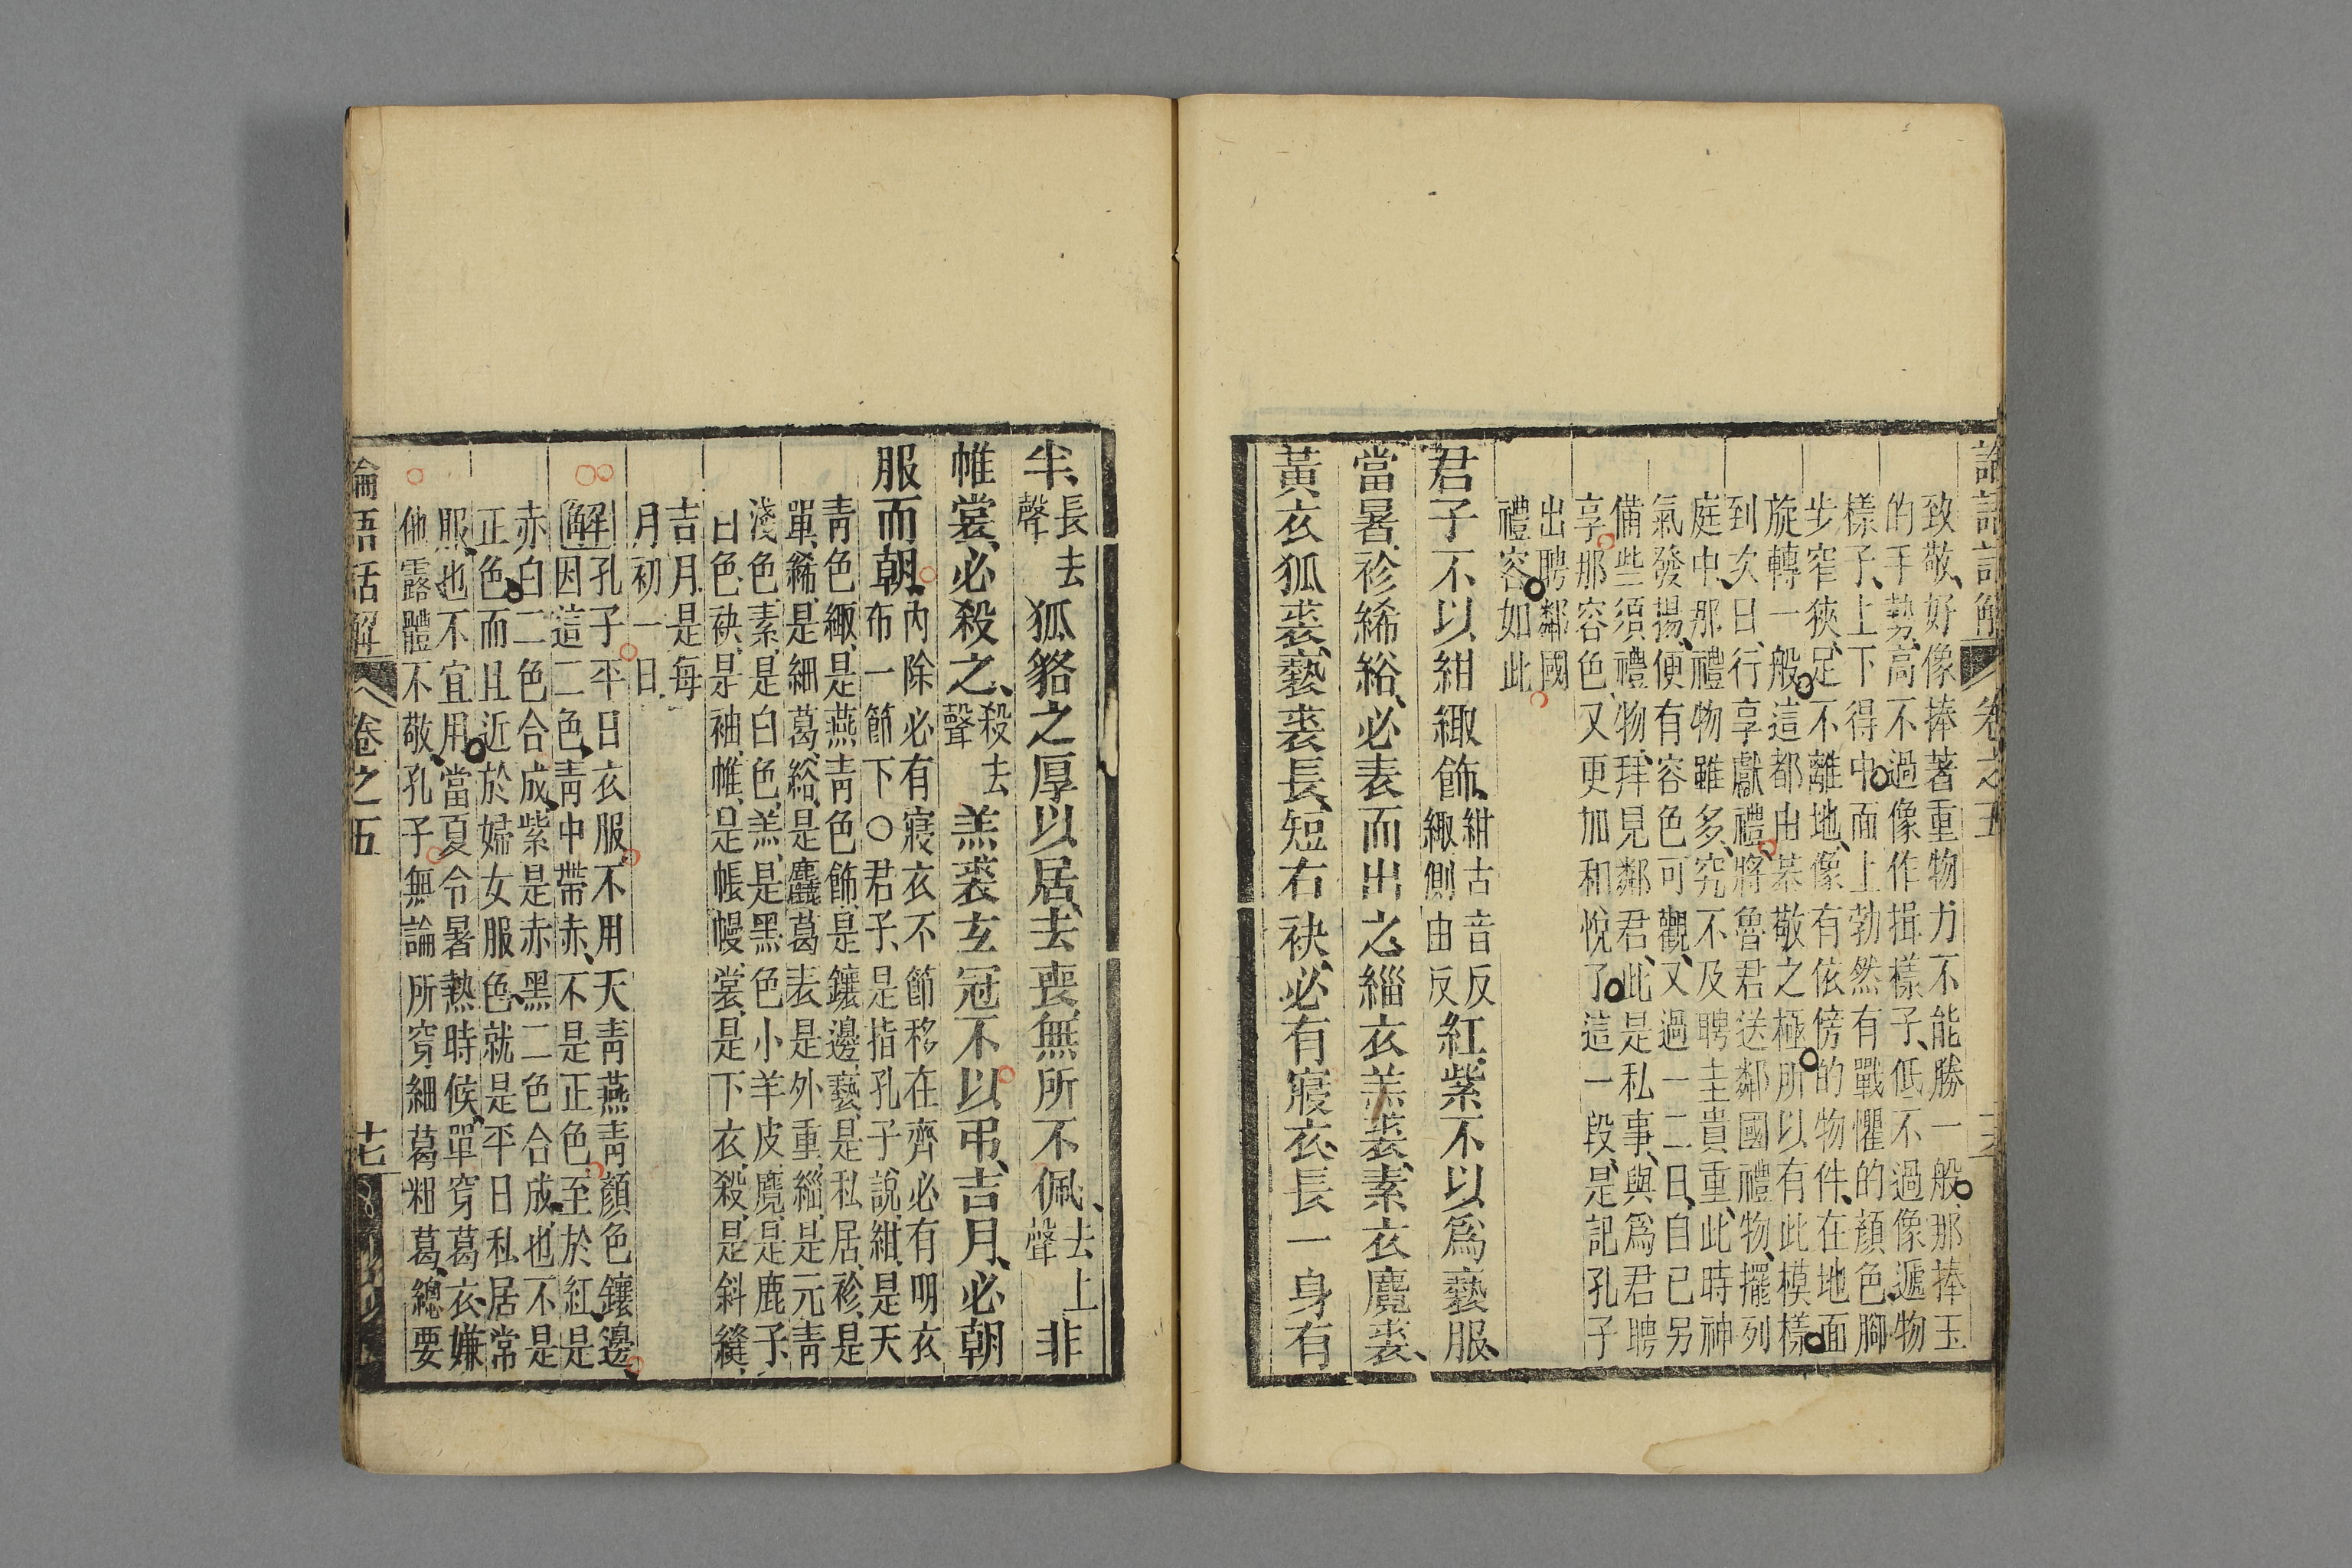 致敬、好像捧著重物力不能勝一般、那捧玉
的手勢、高不過像作揖樣子、低不過像遞物
樣子、上下得中、面上勃然有戰懼的顏色、腳
步窄狹、足不離地、像有依傍的物件、在地面
旋轉一般、這都由恭敬之極、所以有此模樣
到次日、行享獻禮、將魯君送鄰國禮物、擺列
庭中、那禮物雖多、究不及聘圭貴重、此時神
氣發揚、便有容色可觀、又過一二日、自己另
備些須禮物、拜見鄰君、此是私事、與爲君聘
享、那容色、又更加和悅了、這一段、是記孔子
出聘鄰國
禮容如此
君子不以紺緅飾、紺古音反緅側由反紅紫不以爲褻服、
當暑、袗絺綌、必表而出之緇衣羔裘、素衣麑裘、
黃衣狐裘、褻裘長、短右袂、必有寢衣、長一身有
半、長去聲狐貉之厚以居、去喪、無所不佩、去上聲非
帷裳、必殺之、殺去聲羔裘玄冠不以弔、吉月、必朝
服而朝、內除必有寢衣不節移在齊必有明衣
布一節下○君子、是指孔子說、紺、是天
青色緅、是燕青色飾、是鑲邊、褻、是私居、袗、是
單、絺、是細葛、綌、是麤葛表是外重、緇、是元青
淺色、素、是白色、羔、是黑色小羊皮麑、是鹿子、
白色、袂、是袖、帷、是帳幔、裳、是下衣、殺、是斜縫、
吉月、是每
月初一日、
解孔子平日衣服、不用天青燕青顏色鑲邊、
解因這二色、青中帶赤、不是正色、至於紅、是
赤白二色合成、紫是赤黑二色合成、也不是
正色、而且近於婦女服色、就是平日私居常
服、也不宜用、當夏令暑熱時候、單穿葛衣、嫌
他露體不敬、孔子無論所穿細葛粗葛、總要
論語話解
卷之五
十七